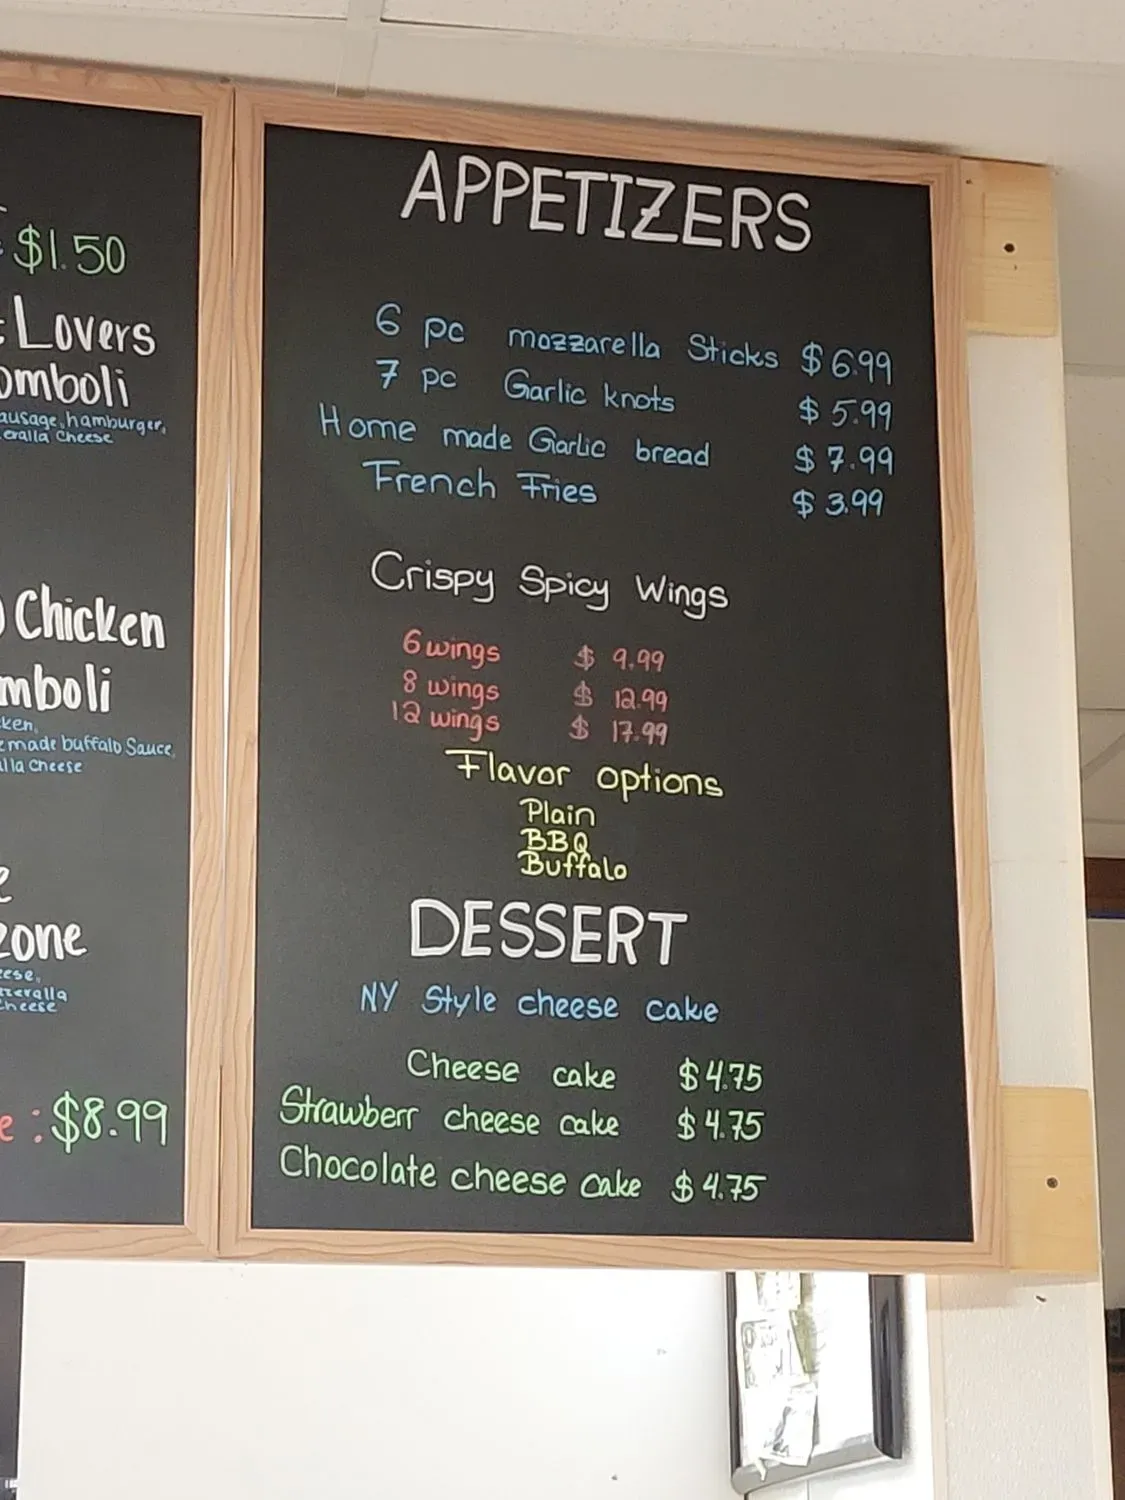 $1.50
Lovers
omboli
ausage, hamburger,
eralla Cheese
Chicken
mboli
ken,
e made buffalo Sauce,
lla Cheese
e
zone
ese,
zzeralla
Cheese
e : $8.99
APPETIZERS
6 pc mozzarella Sticks $6.99
7 pc Garlic knots $5.99
Home made Garlic bread $7.99
French Fries $3.99
Crispy Spicy Wings
6 wings $ 9.99
8 wings $ 12.99
12 wings $ 17.99
Flavor options
Plain
BBQ
Buffalo
DESSERT
NY Style cheese cake
Cheese cake $4.75
Strawberr cheese cake $4.75
Chocolate cheese cake $4.75